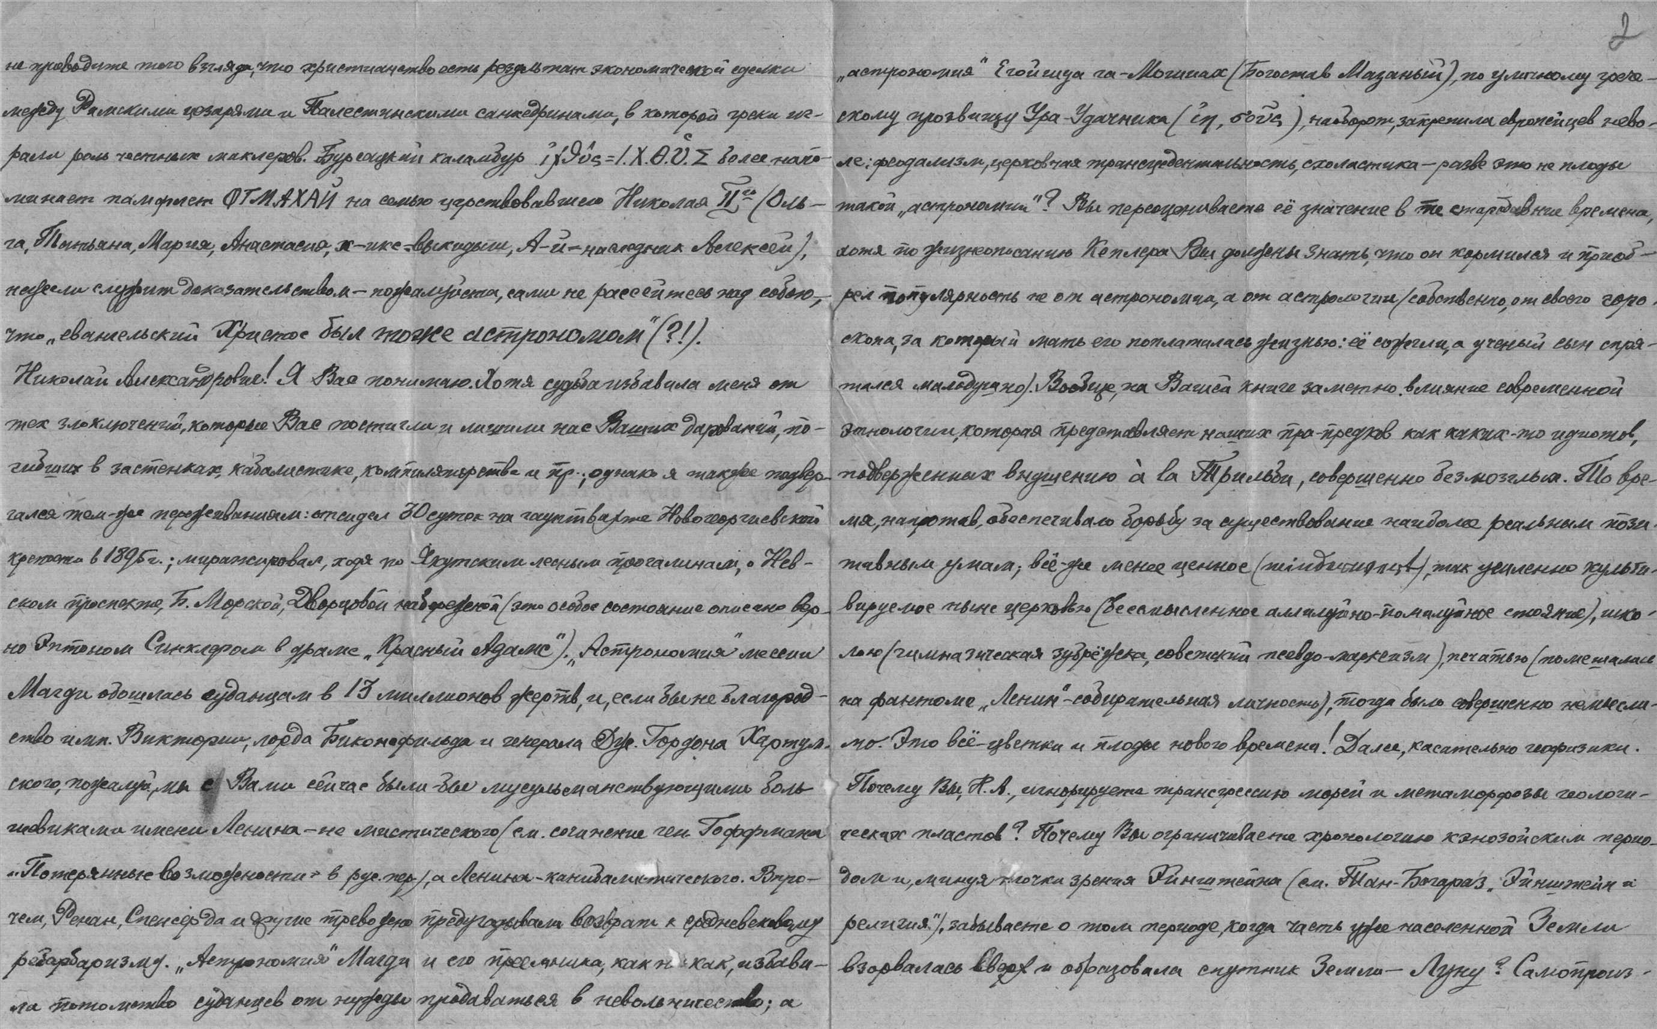 не проводите того взгляда, что христианство есть результат экономической сделки
между Римскими цезарями и Палестинскими санхедринами, в которой греки иг-
рали роль честных маклеров. Бурсацкий каламбур ἰχθύς = Ι.Χ.Θ.Ύ.Σ более напо-
минает памфлет ОТМАХАЙ на семью царствовавшего Николая IIго (Оль-
га, Татьяна, Мария, Анастасия, х-икс-выкидыш, А-й-наследник Алексей),
нежели служит доказательством — пожалуйста, сами не рассейтесь над собою,—
что „евангельский Христос был тоже астрономом" (?!).
Николай Александрович! Я Вас понимаю. Хотя судьба избавила меня от
тех злоключений, которые Вас постигли и лишили нас Ваших дарований, по-
гибших в застенках, кабалистике, компиляторстве и пр.; однако я также подвер-
гался тем-же переживаниям: отсидел 30 суток на гауптвахте Новогеоргиевской
крепости в 1895 г.; миражировал, ходя по Якутским лесным прогалинам, о Нев-
ском проспекте, Б. Морской, Дворцовой набережной (это особое состояние описано вер-
но Эптоном Синклером в драме „Красный Адамс"). „Астрономия" мессии
Магди обошлась суданцам в 13 миллионов жертв, и, если бы не благород-
ство имп. Виктории, лорда Биконсфильда и генерала Дж. Гордона Хартум-
ского, пожалуй, мы с Вами сейчас были-бы мусульманствующими боль-
шевиками имени Ленина — не мистического (см. сочинение ген. Гоффмана
„Потерянные возможности" в рус. пер.), а Ленина-канибалистического. Впро-
чем, Ренан, Спенсер да и другие тревожно предугадывали возврат к средневековому
ребарбаризму. „Астрономия" Магди и его преемника, как никак, избави-
ла потомство суданцев от нужды продаваться в невольничество; а

2
„астрономия" Егошуа га-Мошиах (Богостав Мазаный), по уличному грече-
скому прозвищу Ура-Удачника (ἰή, σοῦς), наоборот, закрепила европейцев нево-
ле: феодализм, церковная трансцедентальность, схоластика — разве это не плоды
такой „астрономии"? Вы переоцениваете её значение в те стародавние времена,
хотя по жизнеописанию Кеплера Вы должны знать, что он кормился и приоб-
рел популярность не от астрономии, а от астрологии (собственно, от своего горо-
скопа, за который мать его поплатилась жизнью: её сожгли, а ученый сын спря-
тался малодушно). Вообще, на Вашей книге заметно влияние современной
этнологии, которая представляет наших пра-предков как каких-то идиотов,
подверженных внушению à la Трильби, совершенно безмозглых. То вре-
мя, напротив, обеспечивало борьбу за существование наиболее реальным пози-
тивным умам; всё-же менее ценное (minderwert), так усиленно культи-
вируемое ныне церковью (бессмысленное аллилуйно-помилуйное стояние), шко-
лою (гимназическая зубрёжка, советский псевдо-марксизм), печатью (помешалась
на фантоме „Ленин"-собирательная личность), тогда было совершенно немысли-
мо. Это всё-цветки и плоды нового времени! Далее, касательно геофизики.
Почему Вы, Н.А., игнорируете трансгрессию морей и метаморфозы геологи-
ческих пластов? Почему Вы ограничиваете хронологию кэнозойским перио-
дом и, минуя точки зрения Эйнштейна (см. Тан-Богораз, „Эйнштейн и
религия"), забываете о том периоде, когда часть уже населенной Земли
взорвалась вверх и образовала спутник Земли — Луну? Самопроиз-